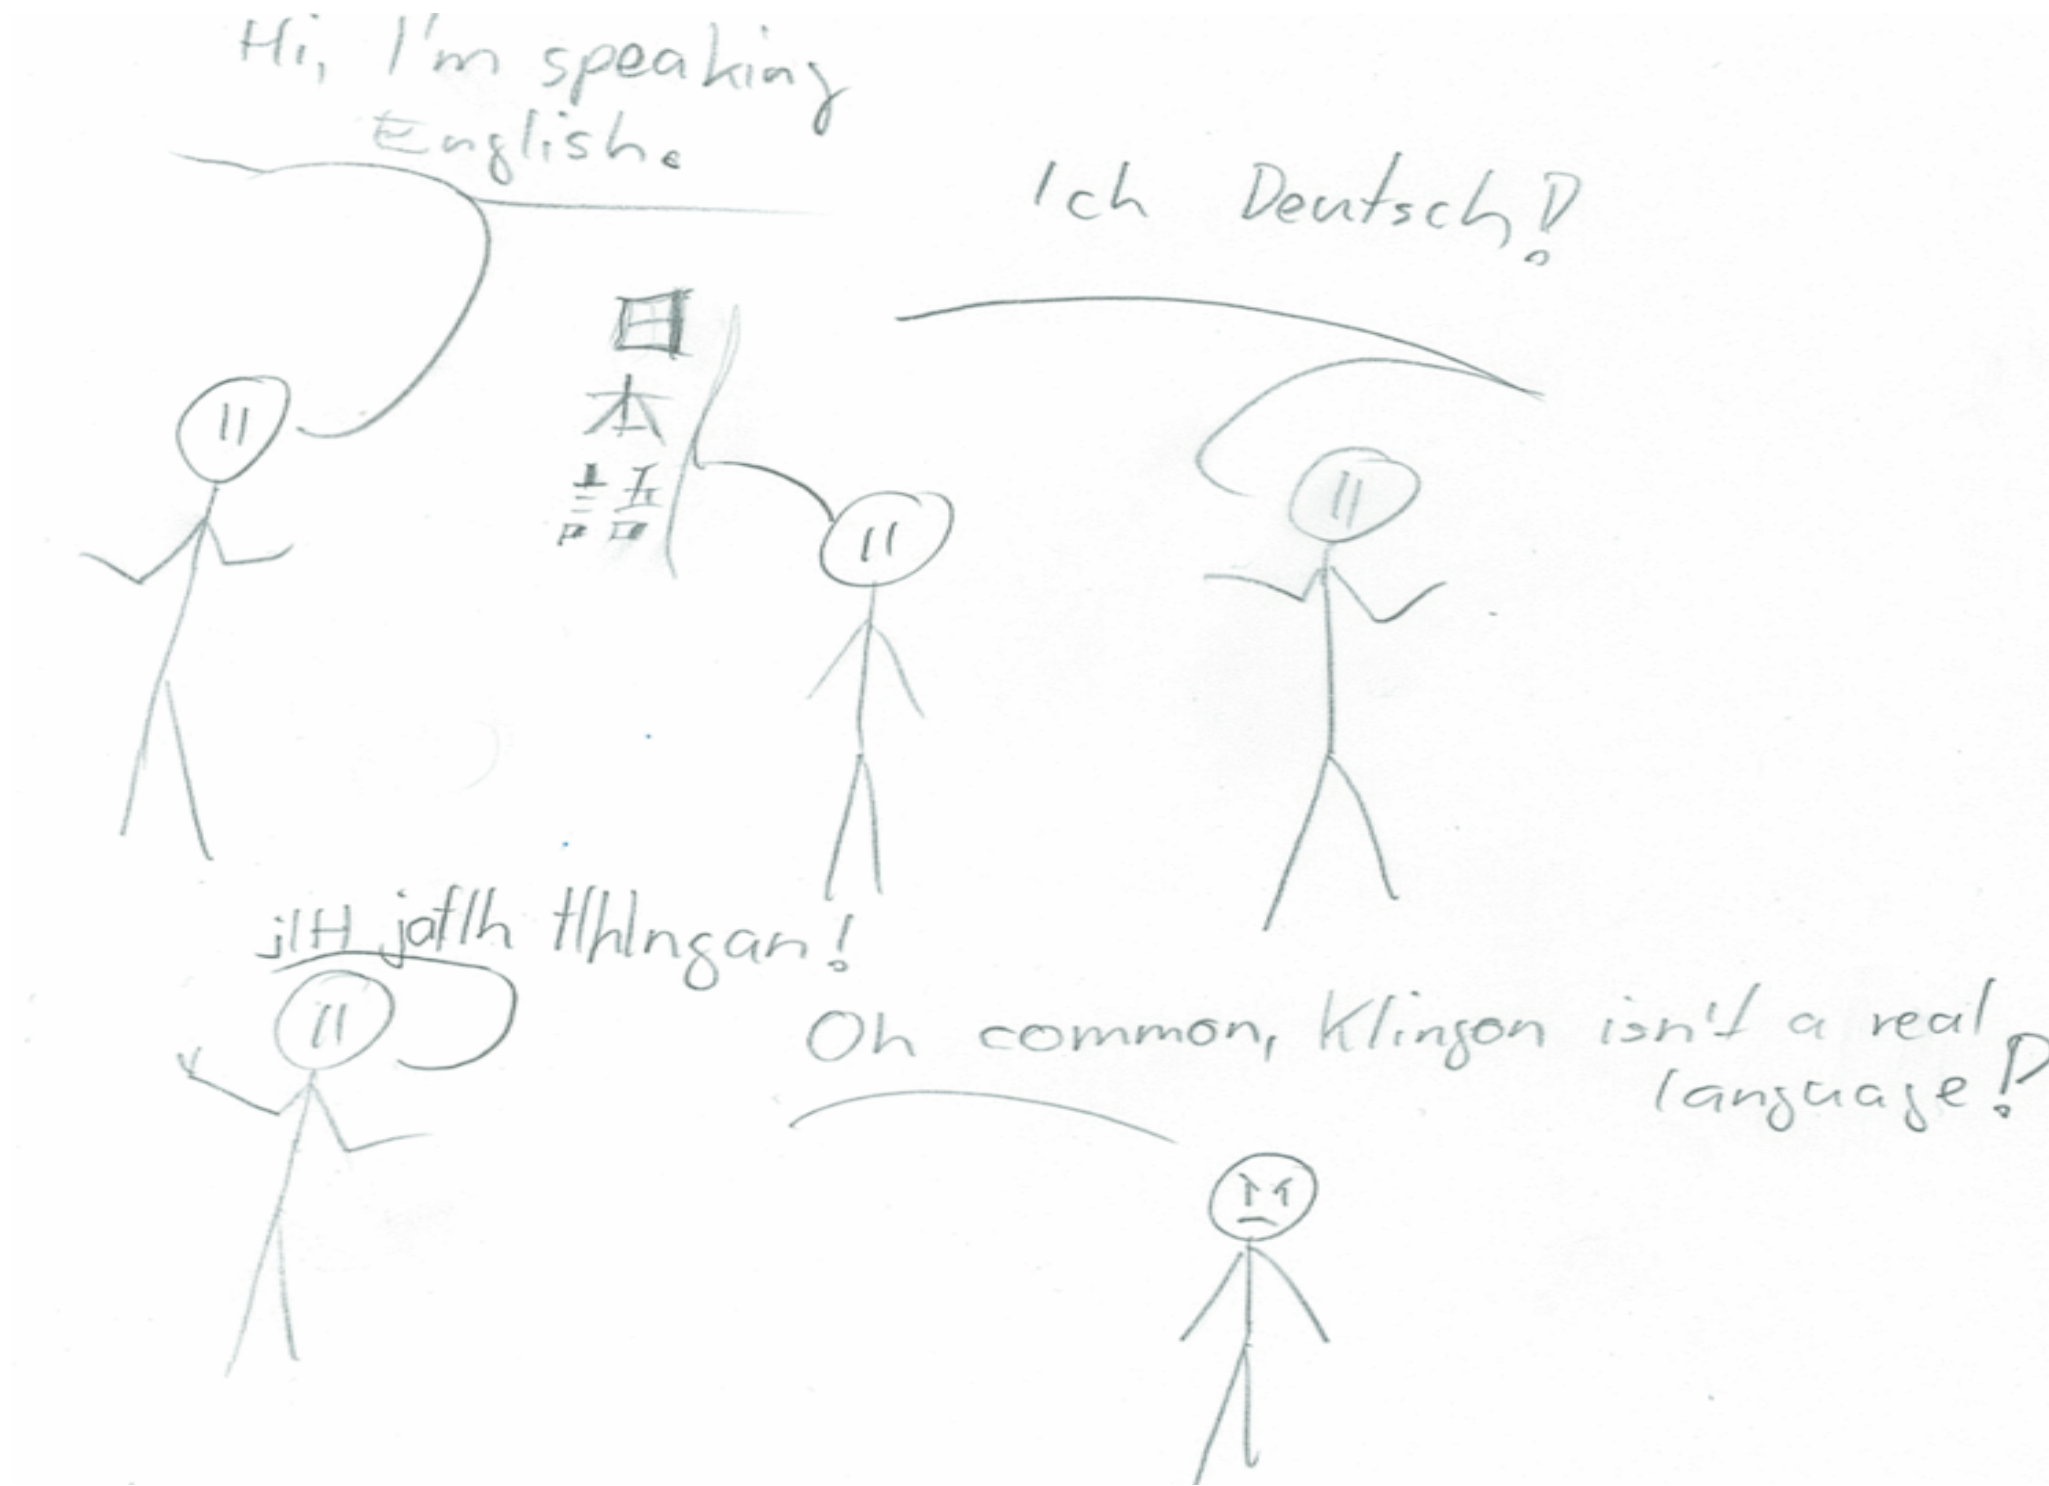 Hi, I'm speaking
English.
Ich Deutsch!
日本語
jIH jatlh tlhIngan!
Oh common, Klingon isn't a real
language!